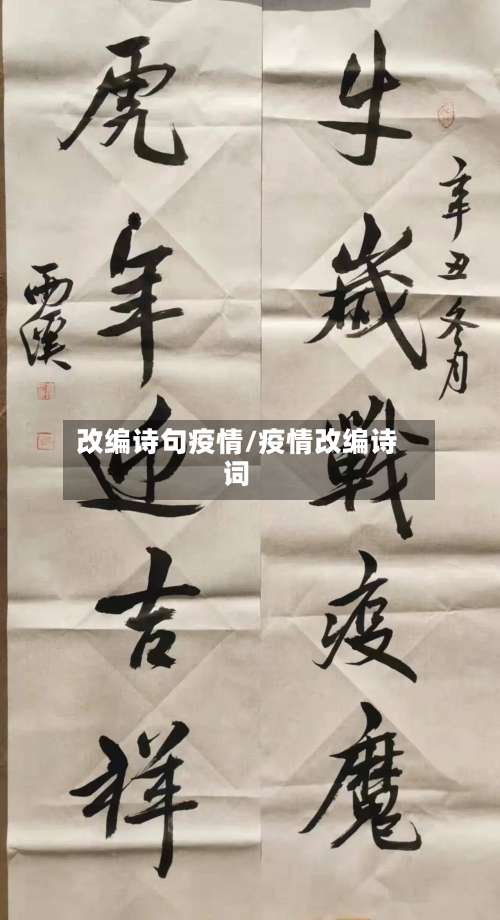 辛丑冬月
牛歲戰疫魔
虎年迎吉祥
雨溪
改编诗句疫情/疫情改编诗
词